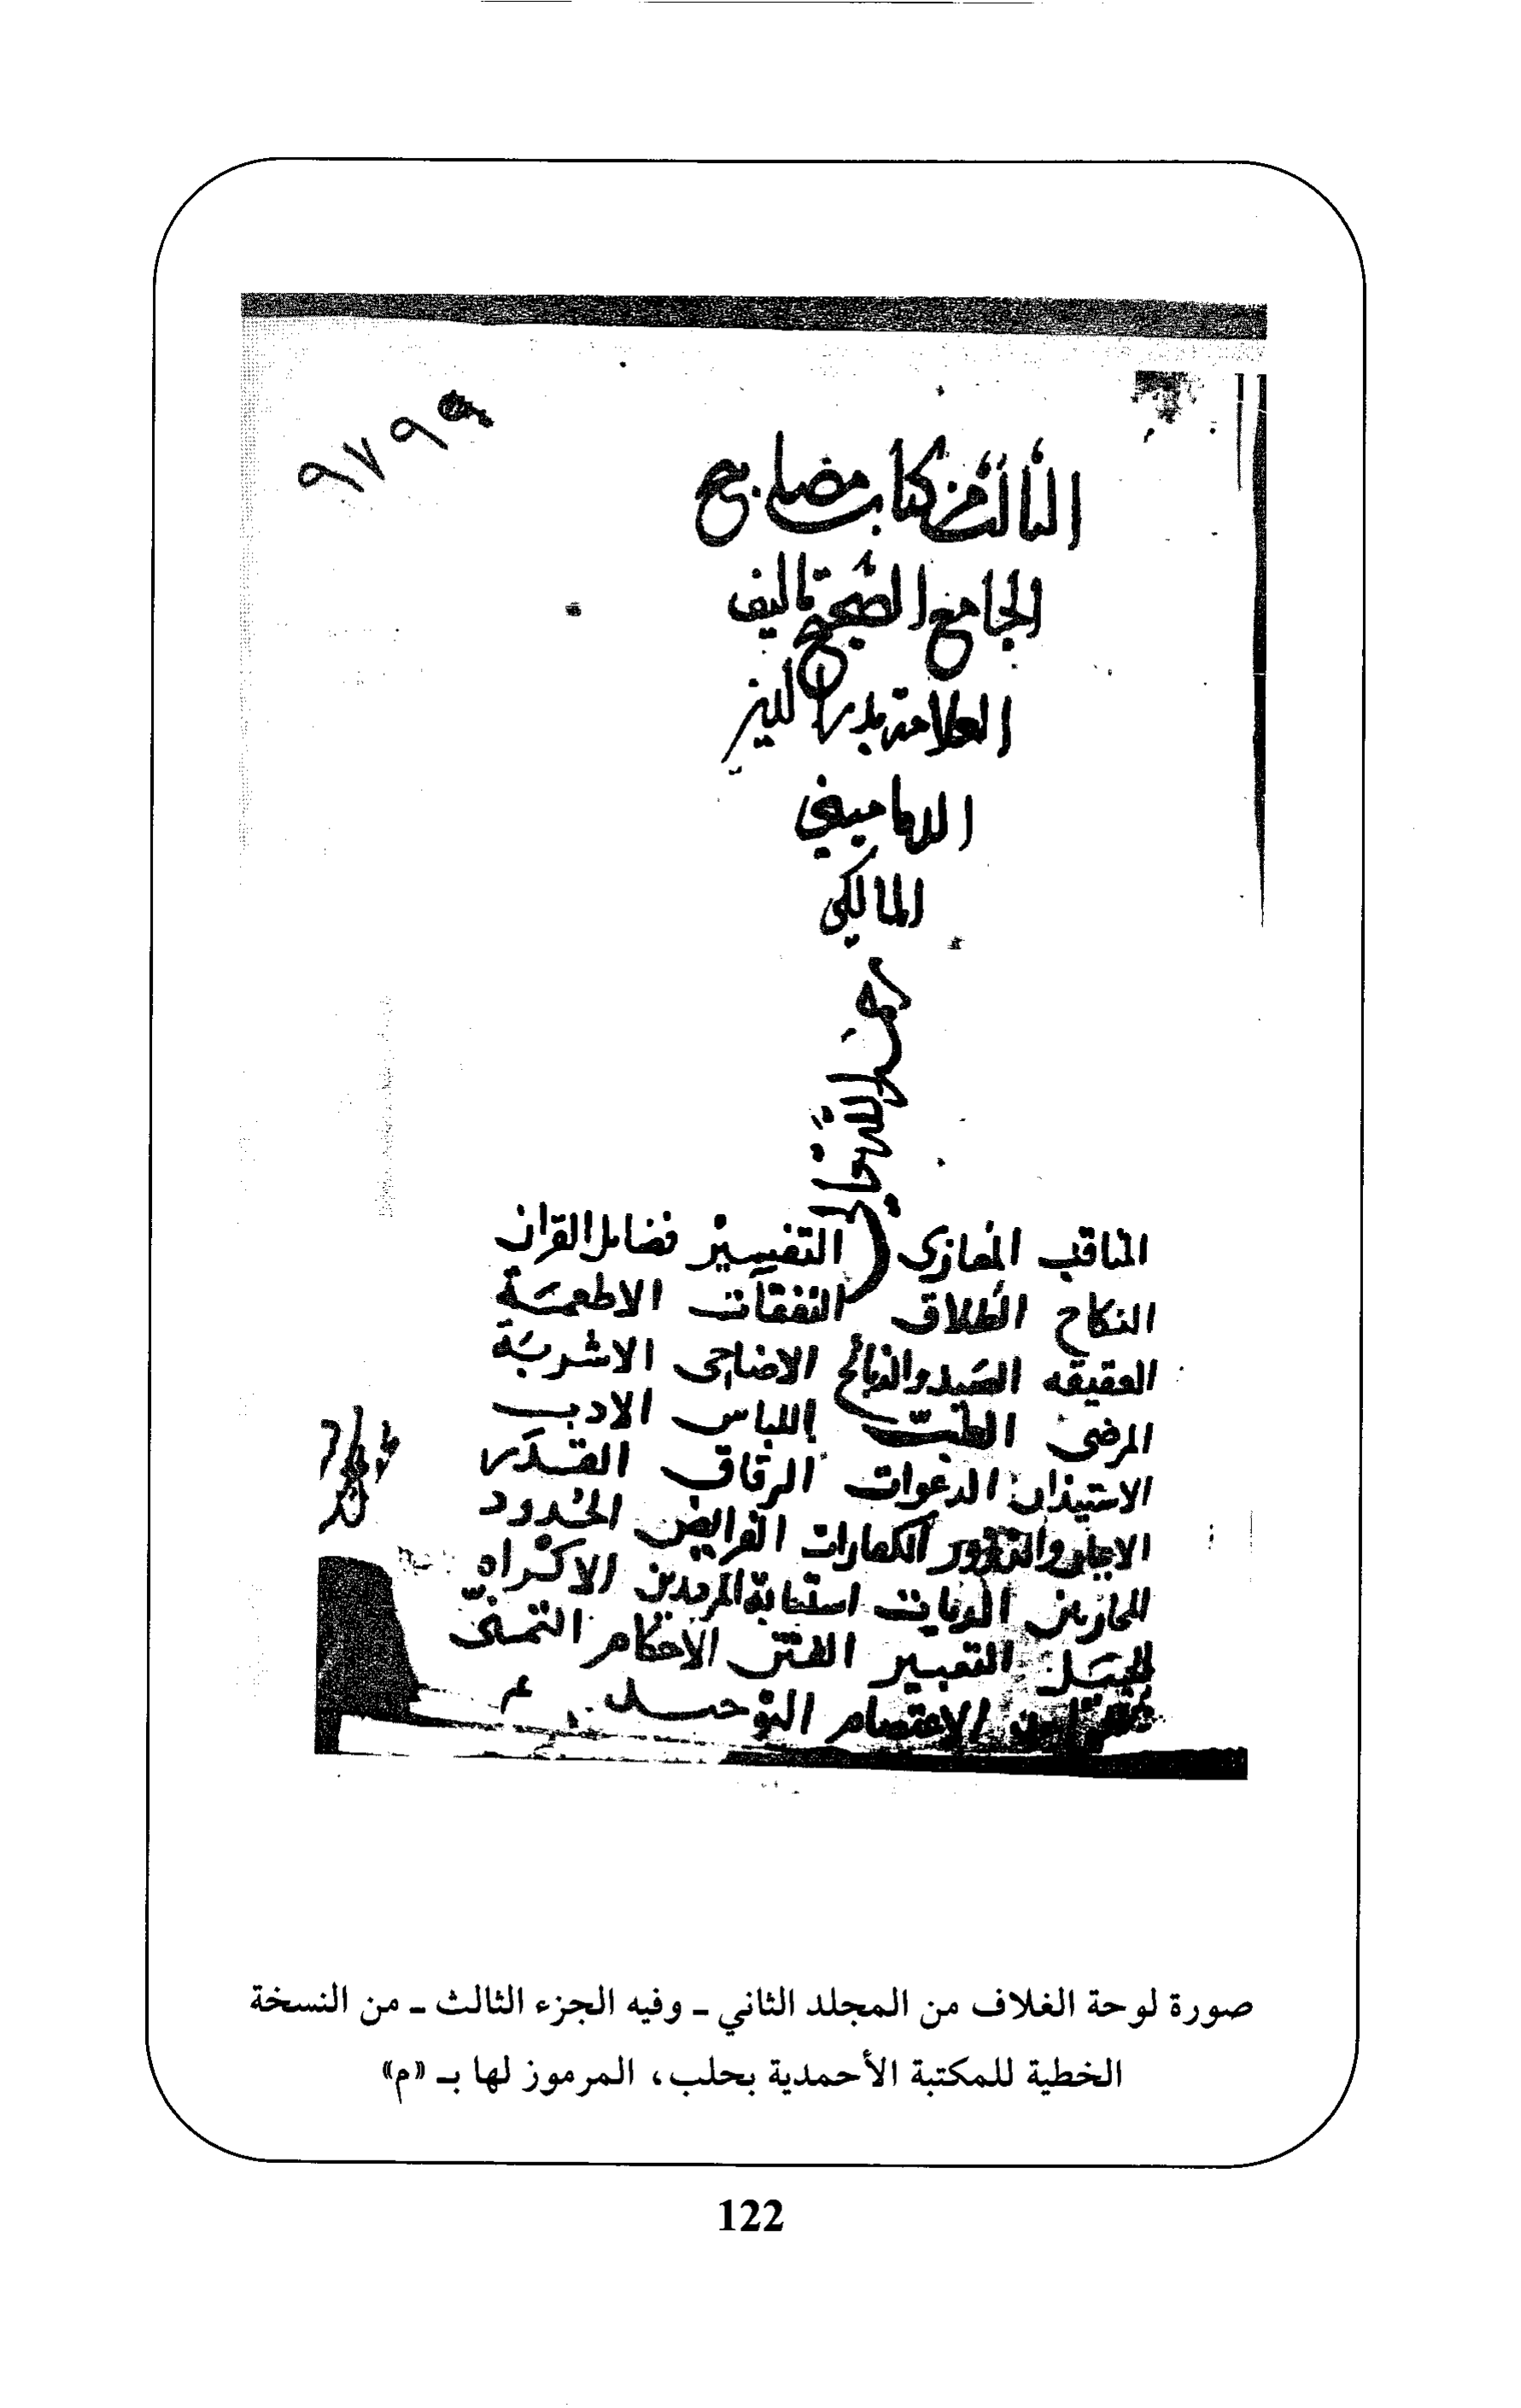 ٩٧٩٩
الثالث من كتاب مصابيح
الجامع الصحيح تاليف
العلامة بدر الدين
الدماميني
المالكي
رحمه الله تعالى
المناقب المغازى التفسير فضايل القران
النكاح الطلاق النفقات الاطعمة
العقيقه الصيد والذبائح الاضاحى الاشربة
المرضى الطب اللباس الادب
الاستيذان الدعوات الرقاق القدر
الايمان والنذور الكفارات الفرايض الحدود
المحاربين الديات استتابة المرتدين الاكراه
الحيل التعبير الفتن الاحكام التمنى
الاعتصام التوحيد
صورة لوحة الغلاف من المجلد الثاني - وفيه الجزء الثالث - من النسخة
الخطية للمكتبة الأحمدية بحلب، المرموز لها بـ «م»
122